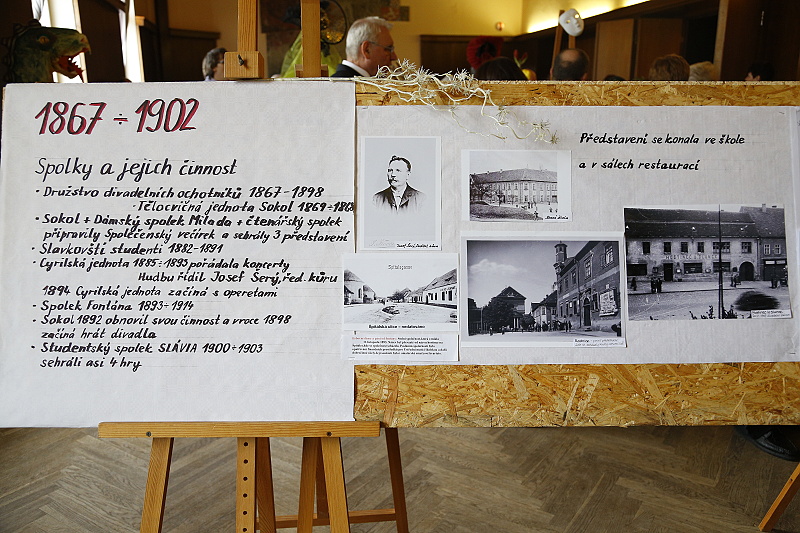 1867 ÷ 1902
Spolky a jejich činnost
· Družstvo divadelních ochotníků 1867-1898
· Tělocvičná jednota Sokol 1869÷1868
· Sokol + Dámský spolek Milada + čtenářský spolek
připravily Společenský večírek a sehrály 3 představení
· Slavkovští studenti 1882-1891
· Cyrilská jednota 1885÷1893 pořádala koncerty
Hudbu řídil Josef Šerý, řed. kůru
1894 Cyrilská jednota začíná s operetami
· Spolek Fontána 1893÷1914
· Sokol 1892 obnovil svou činnost a v roce 1898
začíná hrát divadla
· Studentský spolek SLÁVIA 1900÷1903
sehráli asi 4 hry
Představení se konala ve škole
a v sálech restaurací
Josef Šerý
Špitálská ulice - nedatováno
Radnice